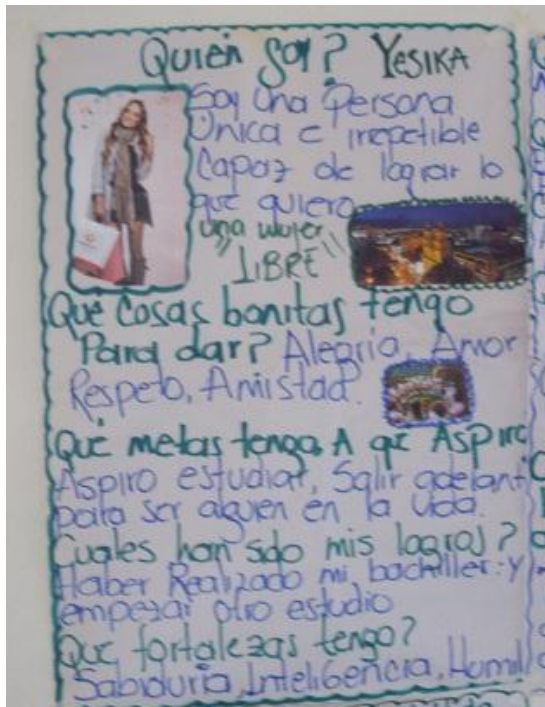 Quien Soy? YESIKA
Soy Una Persona
Unica e irrepetible
Capaz de lograr lo
que quiero
una mujer
"LIBRE"
Que Cosas bonitas tengo
Para dar? Alegria, Amor
Respeto, Amistad.
Que metas tengo A qe Aspiro
Aspiro estudiar, Salir adelant
para ser alguien en la vida.
Cuales han sido mis logros?
Haber Realizado mi bachiller y
empezar otro estudio
Que fortalezas tengo?
Sabiduria, Inteligencia, Humil